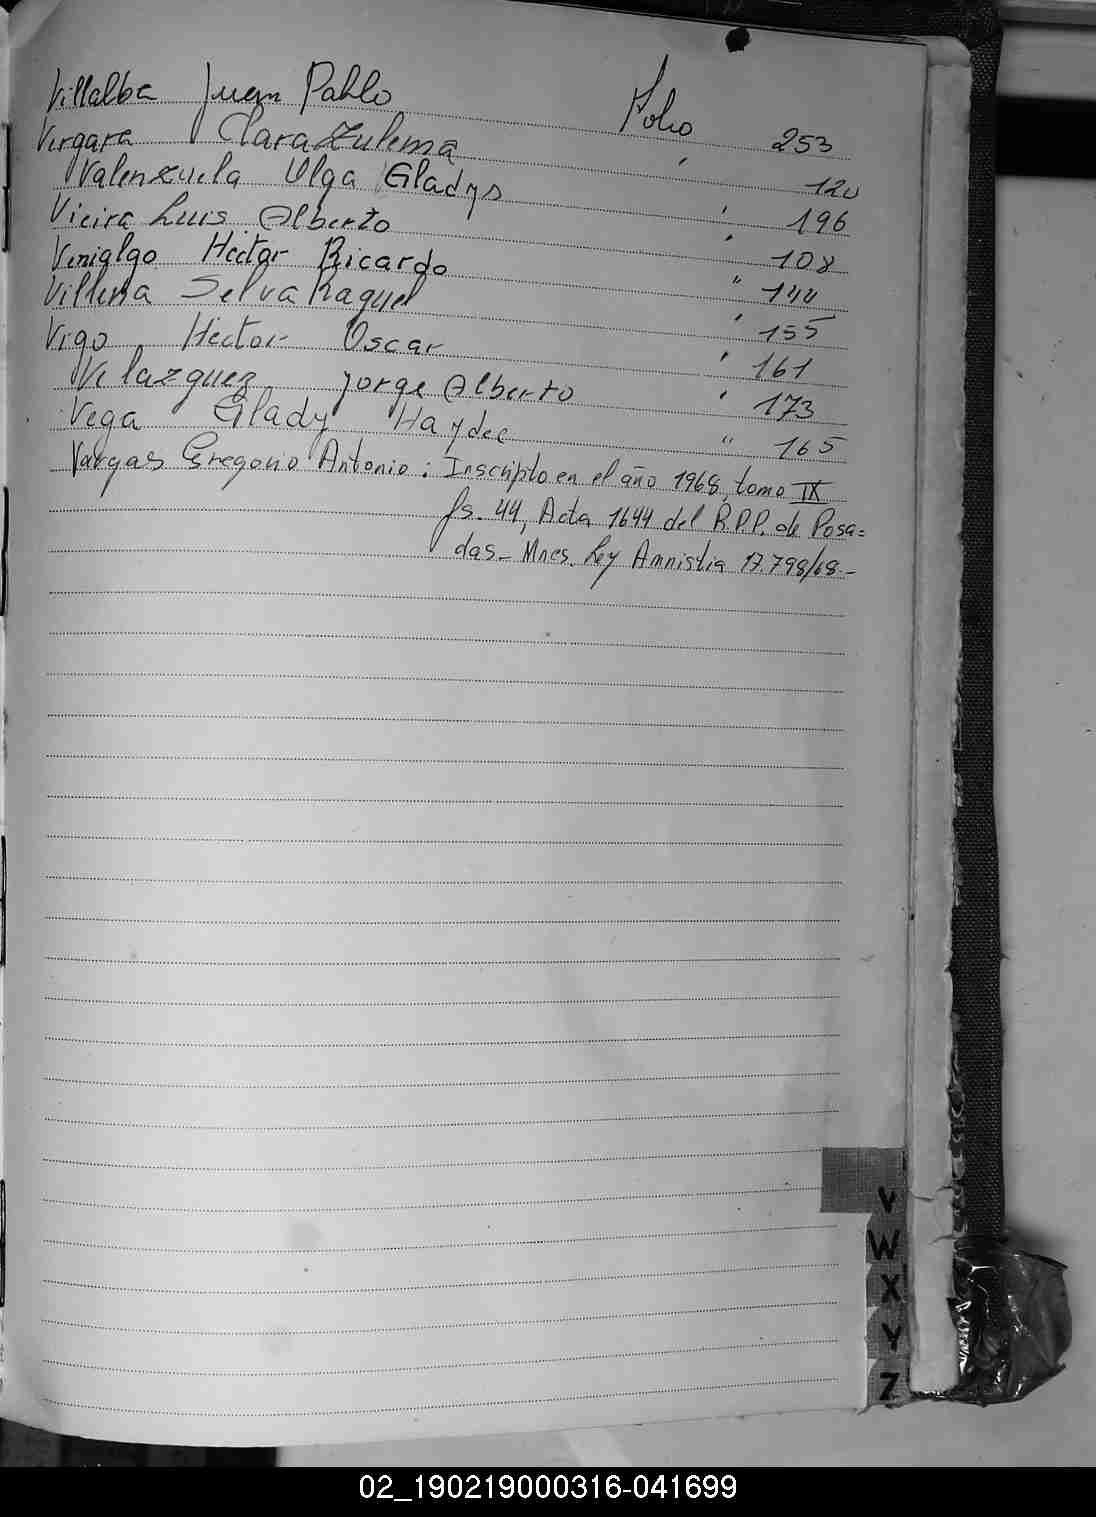 Villalba Juan Pablo Folio 253
Vergara Clara Zulema " 120
Valenzuela Olga Gladys " 196
Vieira Luis Alberto " 108
Venialgo Hector Ricardo " 144
Villena Selva Raquel " 155
Vigo Hector Oscar " 161
Velazquez Jorge Alberto " 173
Vega Glady Haydee " 165
Vargas Gregorio Antonio: Inscripto en el año 1968, tomo IX
fs. 44, Acta 1644 del R.P.P. de Posa=
das_ Mnes. Ley Amnistia 17.798/68.-
V
W
X
Y
Z
02_190219000316-041699